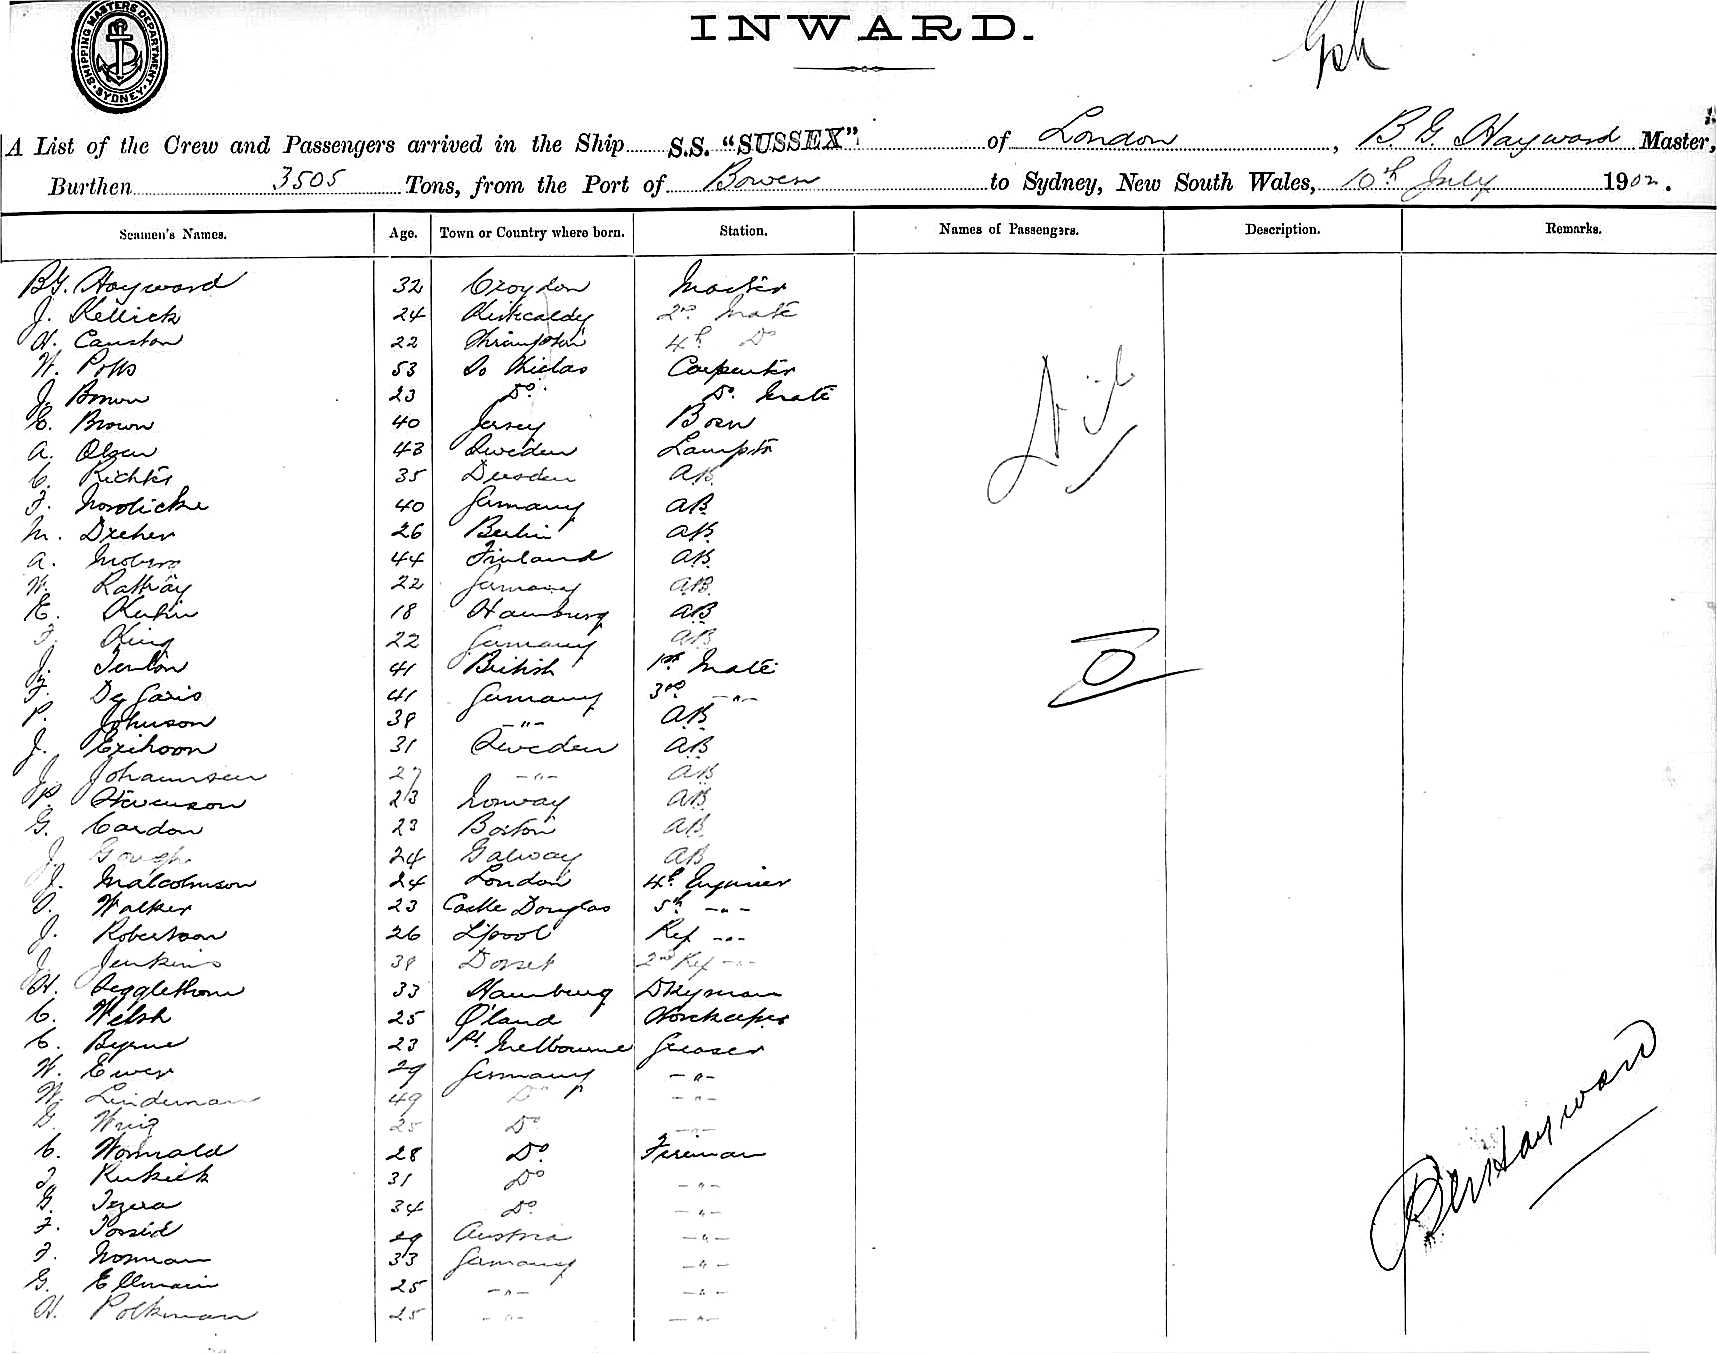 SHIPPING MASTERS DEPARTMENT SYDNEY
INWARD.
A List of the Crew and Passengers arrived in the Ship S.S. "SUSSEX" of London, B. G. Hayward Master,
Burthen 3505 Tons, from the Port of Bowen to Sydney, New South Wales, 10th July 1902.
Seamen's Names. Age. Town or Country where born. Station. Names of Passengers. Description. Remarks.
B G. Hayward 32 Croydon Master
J. Kellick 24 Kirkcaldy 2nd Mate
H. Causton 22 4th Do
W. Potts 53 So Shields Carpenter
J. Brown 23 Do. Do. Mate
E. Brown 40 Jersey Bosn
A. Olsen 43 Sweden Lamptr
C. Richter 35 Dresden AB.
F. Nordicke 40 Germany AB.
M. Dreher 26 Berlin AB.
A. Moberg 44 Finland AB.
W. Rattray 22 Germany AB.
E. Kuhn 18 Hamburg AB
F. King 22 Germany AB
J. Fenton 41 British 1st Mate
F. De Garis 41 Germany 3rd -"-
P. Johnson 38 -"- AB.
J. 31 Sweden AB
J. Johannsen 27 -"- AB
P. Stevenson 23 Norway AB.
G. Cardon 23 Boston AB.
J. Gough 24 Galway AB
J. Malcolmson 24 London 4th Engineer
O. Walker 23 Castle Douglas 5th -"-
J. Robertson 26 L'pool Ref -"-
J. Jenkins 38 Dorset 2nd Ref -"-
H. 33 Hamburg Dkyman
C. Welsh 25 Q'land Storekeeper
C. Byrne 23 Pt. Melbourne Greaser
W. Ewer 29 Germany -"-
W. Lindeman 49 Do -"-
G. 25 Do -"-
C. Wormald 28 Do. Fireman
31 Do -"-
G. 34 Do -"-
F. 29 Austria -"-
F. Norman 33 Germany -"-
G. Ellmain 25 -"- -"-
H. Polkman 25 -"- -"-
Nil
B G Hayward